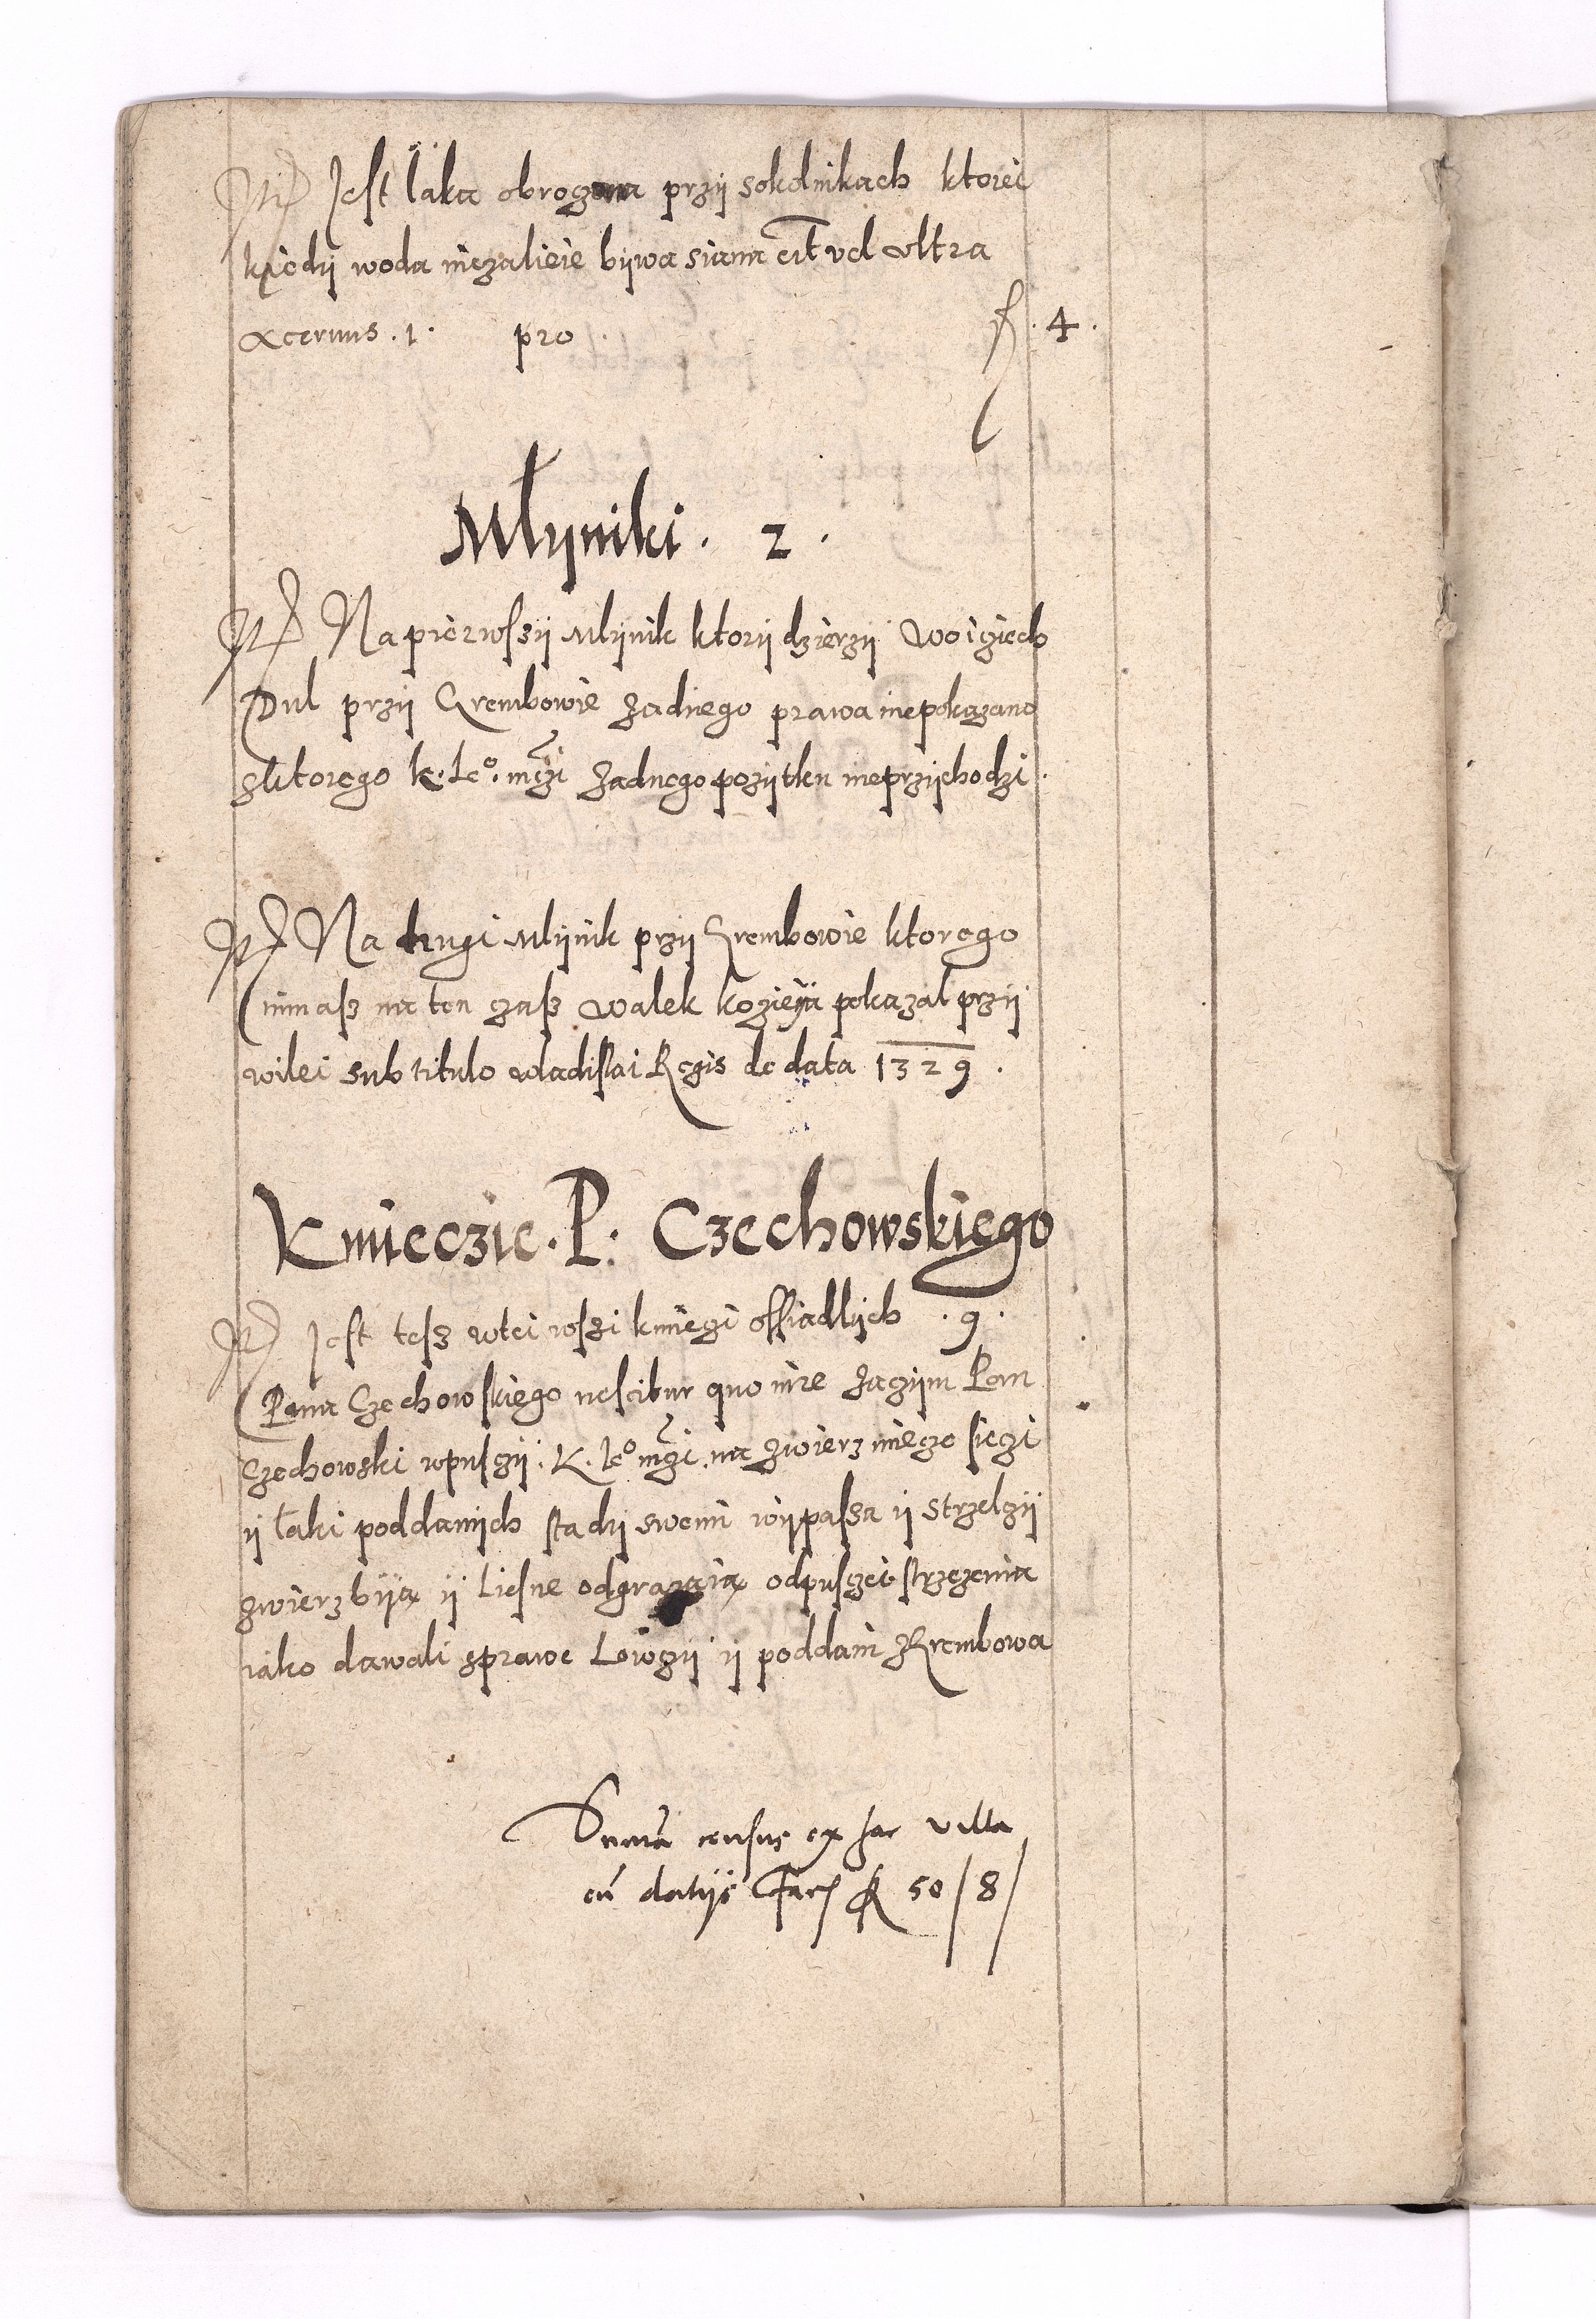 Itē Jest łąka obroczna przÿ Sokolnikach ktorei
kiedÿ woda niezalieie bÿwa siana erit vel vltra
acervus .1. pro f. 4.
Młÿniki . 2 .
Itē Na pierwszÿ Mlÿnik ktorÿ dzierzÿ Woiciech
Dul przÿ Grembowie zadnego prawa niepokazano
zktorego k. Je⁰. mczi zadnego pozÿtku nieprzÿchodzi .
Itē Na drugi Mlÿnik przÿ Grembowie ktorego
na ten czasz Walek pokazal przÿ
wilei sub titulo Wladislai Regis de data 1329 .
Kmieczie . P. Czechowskiego
Itē Jest tesz wtei wszi kmieci ossiadlÿch . 9 .
Pana Czechowskiego nescitur quo iure zaczÿm Pan
Czechowski wpusczÿ . K. Je⁰ mczi . na zwierz mięcze sieczi
ÿ łaki poddanÿch stadÿ swemi wÿpassa ÿ strzelczÿ
zwierz bÿa ÿ Liesne odgrazaia odpusczei strzezenia
iako dawali sprawe Lowczÿ ÿ poddani zGrembowa
Summa census ex hac villa
cū datijs facit 50/8/